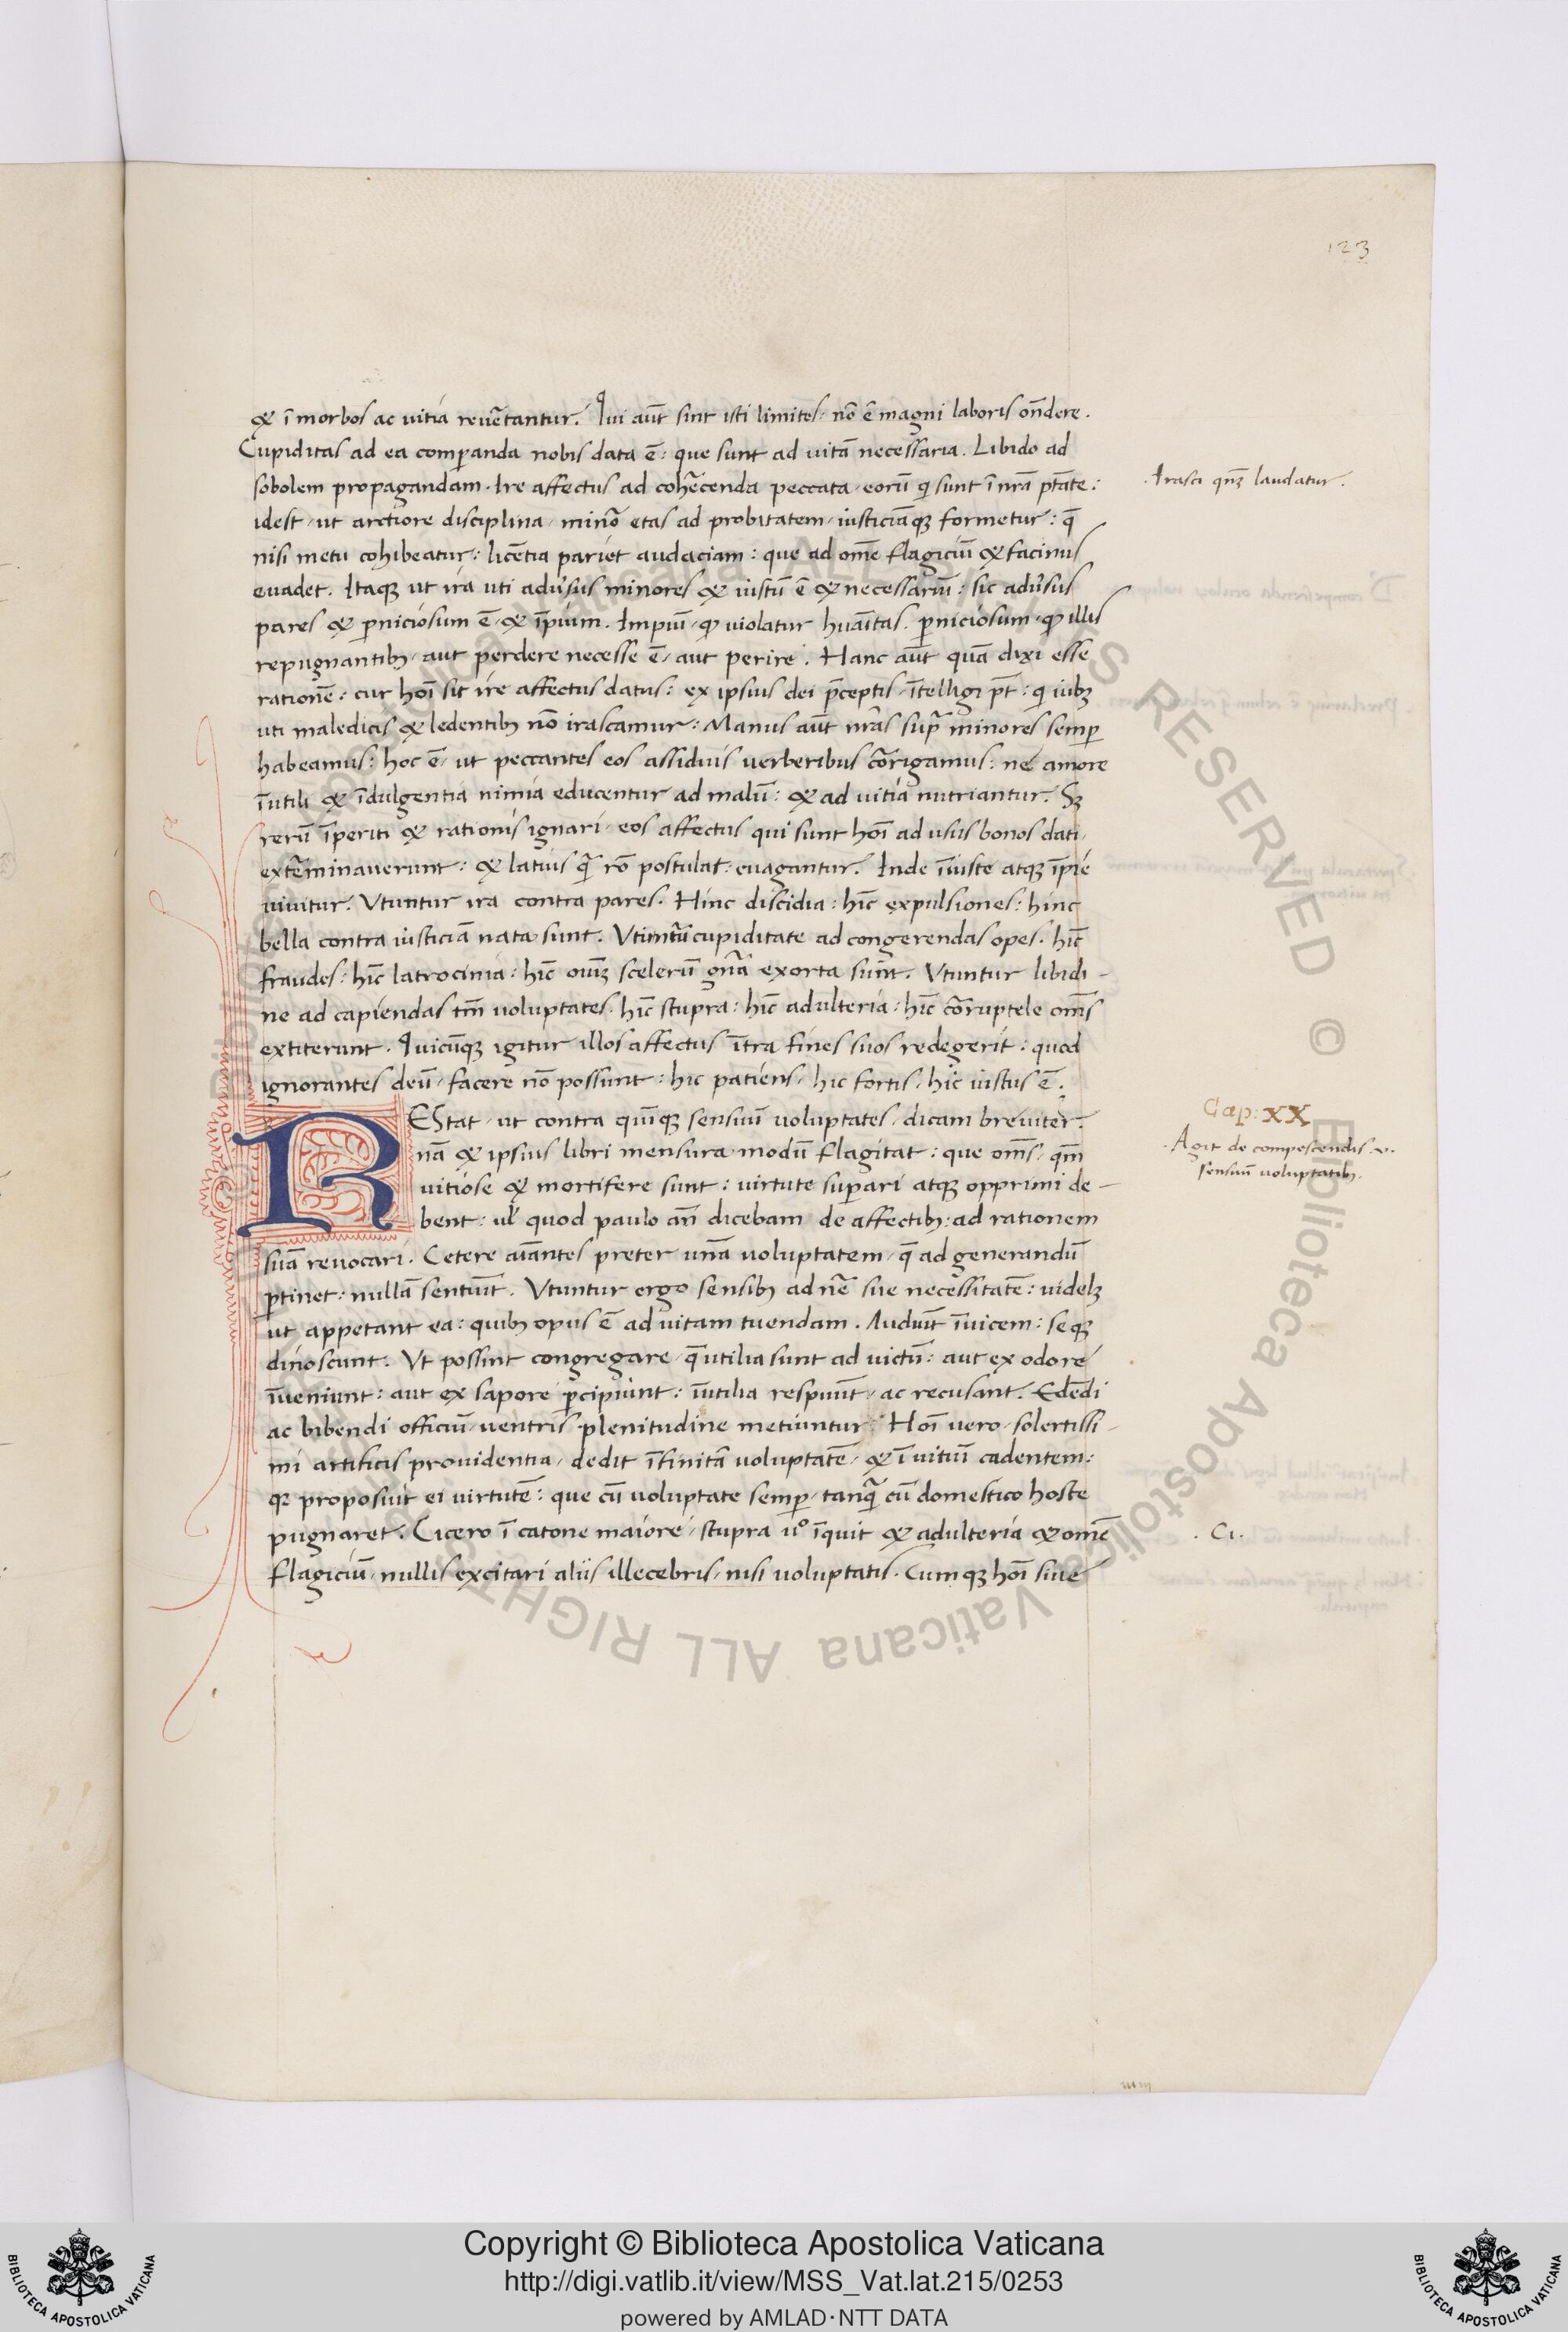 123
⁊ ī morbos ac vitia reuẽtantur. Qui aūt sint isti limites: nō ē magni laboris oñdere.
Cupiditas ad ea comꝑanda nobis data ē: que sunt ad vitā necessaria. Libido ad
sobolem propagandam. Ire affectus ad cohercenda peccata, eorū qi sunt ī nrā ptāte:
.Irasci qñꝫ laudatur.
idest, ut arctiore disciplina, minor etas ad probitatem, iusticiāqꝫ formetur: q̄
nisi metu cohibeatur: licētia pariet audaciam: que ad om̄e flagiciū ⁊ facinus
euadet. Itaqꝫ ut ira uti adu̓sus minores ⁊ iustū ē ⁊ necessariū: sic adu̓sus
pares ⁊ ꝑniciosum ē, ⁊ īpium. Impiū, ꝙ violatur huāitas. ꝑniciosum, ꝙ illis
repugnantibꝫ, aut perdere necesse ē, aut perire. Hanc aūt quā dixi esse
rationē: cur hoī sit ire affectus datus: ex ipsius dei p̄ceptis, ītelligi pt̄: qi iubꝫ
uti maledicis ⁊ ledentibꝫ nō irascamur: Manus aūt nr̄as supra minores semꝑ
habeamus: hoc ē, ut peccantes eos assiduis uerberibus cōrrigamus: ne amore
īutili ⁊ īdulgentia nimia educentur ad malū: ⁊ ad vitia nutriantur. Sꝫ
rerū īperiti ⁊ rationis ignari, eos affectus qui sunt hoī ad usus bonos dati,
exterminauerunt: ⁊ latius quā rō postulat, euagantur. Inde īiuste atqꝫ īpie
viuitur. Vtuntur ira contra pares. Hinc discidia: hīc expulsiones: hinc
bella contra iusticiā nata sunt. Vtūntur cupiditate ad congerendas opes. hīc
fraudes: hīc latrocinia: hīc om̄iꝫ scelerū gn̄a exorta sunt. Vtuntur libidi-
ne ad capiendas tm̄ voluptates. hīc stupra: hīc adulteria: hīc cōrruptele om̄s
extiterunt. Quicūqꝫ igitur illos affectus ītra fines suos redegerit: quod
ignorantes deū, facere nō possunt: hic patiens, hic fortis, hic iustus ē.
Cap: XX
REstat, ut contra quīqꝫ sensuū voluptates, dicam breuiter.
.Agit de compescendis .v.
sensuū voluptatibꝫ.
nā ⁊ ipsius libri mensura modū flagitat: que om̄s, qm̄
vitiose ⁊ mortifere sunt: virtute suꝑari atqꝫ opprimi de-
bent: ul̓ quod paulo an̄ dicebam de affectibꝫ: ad rationem
suā reuocari. Cetere aīantes preter unā voluptatem, q̄ ad generandū
ꝑtinet: nullā sentiūt. Vtuntur ergo sensibꝫ ad nē sue necessitatē: videlꝫ
ut appetant ea: quibꝫ opus ē ad vitam tuendam. Audiūt īuicem: se qꝫ
dinoscunt. Vt possint congregare, q̄ utilia sunt ad victū: aut ex odore
īueniunt: aut ex sapore ꝑcipiunt: īutilia respuūt, ac recusant. Edēdi
ac bibendi officiū, ventris plenitudine metiuntur. Hoī vero, solertissi-
mi artificis prouidentia, dedit īfinitā voluptatē, ⁊ ī vitiū cadentem:
qꝫ proposuit ei virtutē: que cū voluptate semꝑ, tanquā cū domestico hoste
pugnaret. Cicero ī catone maiore, stupra uo īquit ⁊ adulteria ⁊ om̄e
. Ci.
flagiciū, nullis excitari aliis illecebris, nisi voluptatis. Cumqꝫ hoī siue
Copyright © Biblioteca Apostolica Vaticana
http://digi.vatlib.it/view/MSS_Vat.lat.215/0253
powered by AMLAD·NTT DATA